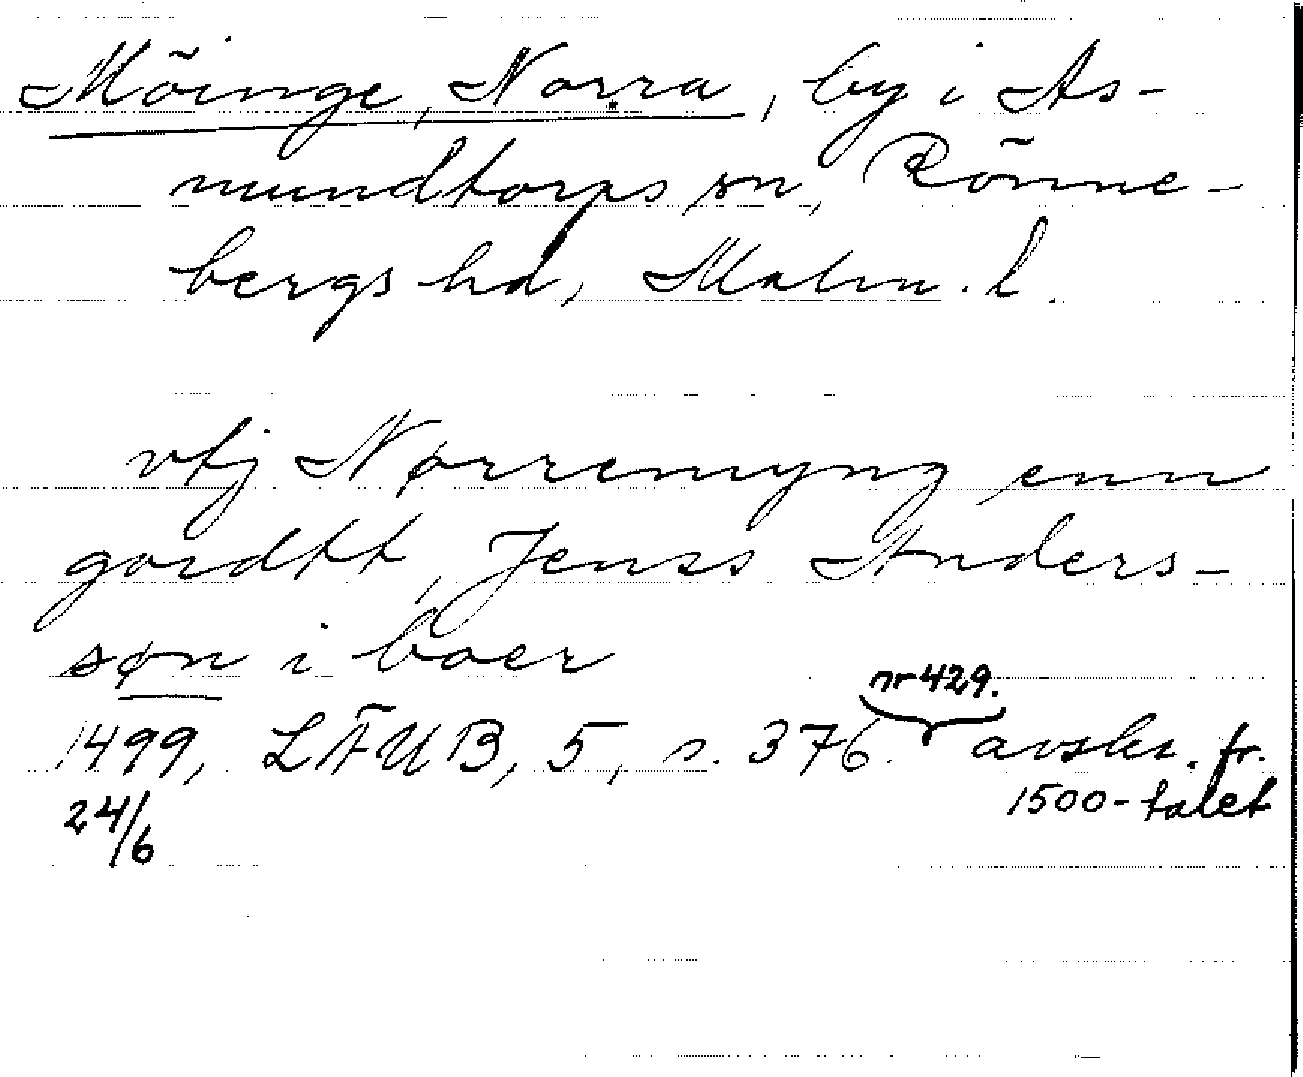 Möinge, Norra, by i As-
mundtorps sn, Rönne-
bergs hd, Malm. l.
vtj Nørremyng enn
gordtt, Jenss Anders-
søn i boer
nr 429.
1499, LÄUB, 5, s. 376. avskr. fr.
24/6 1500-talet